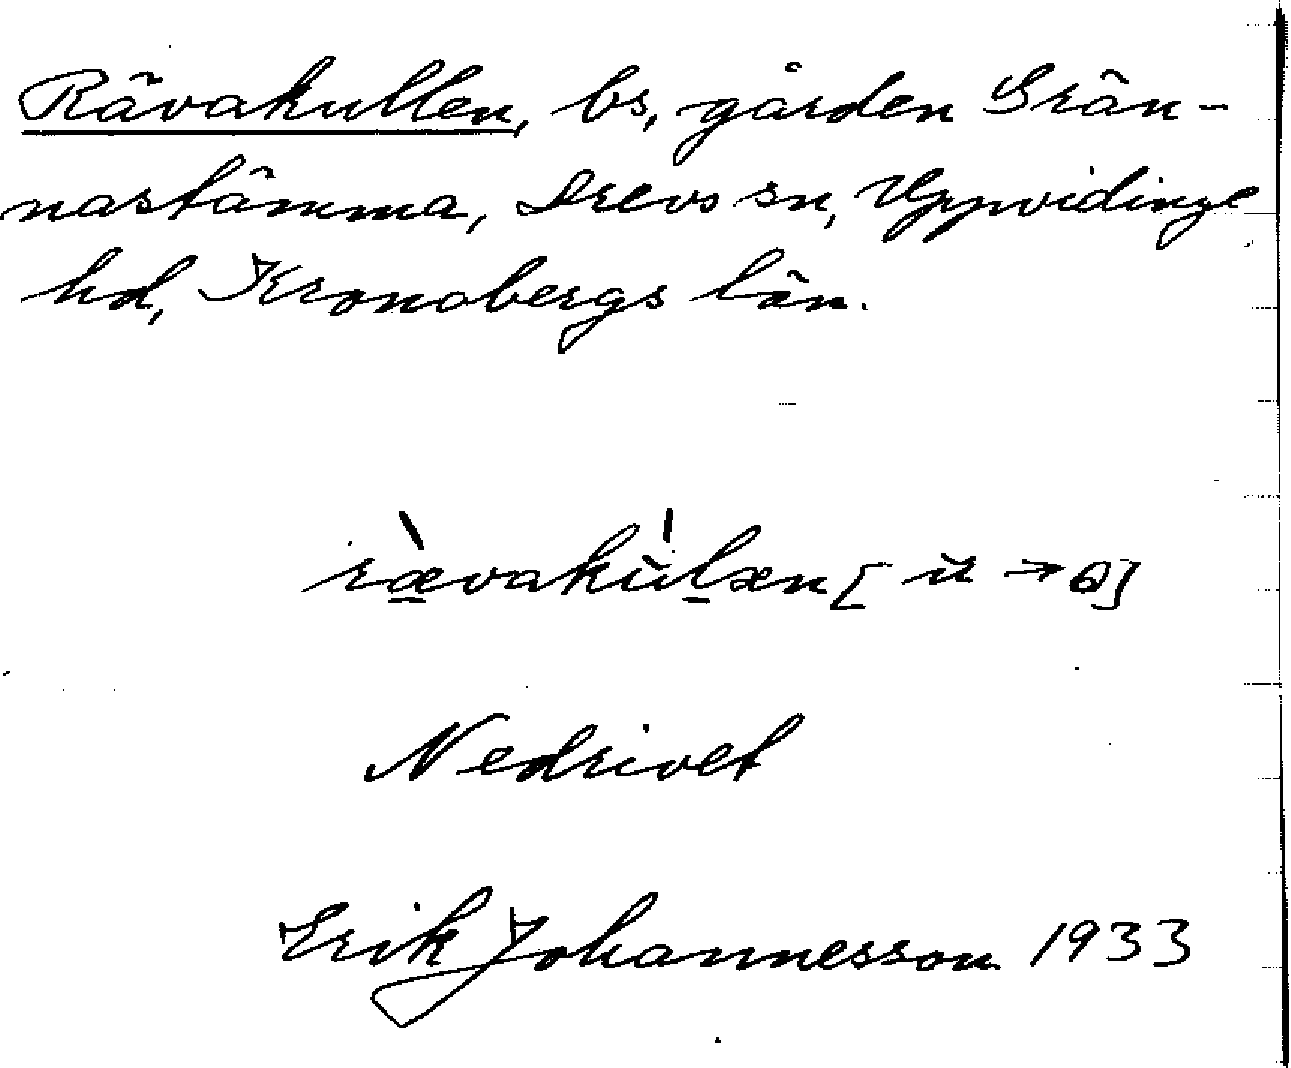 Rävakullen, bs, gården Grän-
nastämma, Drevs sn, Uppvidinge
hd, Kronobergs län.
Nedrivet
Erik Johannesson 1933